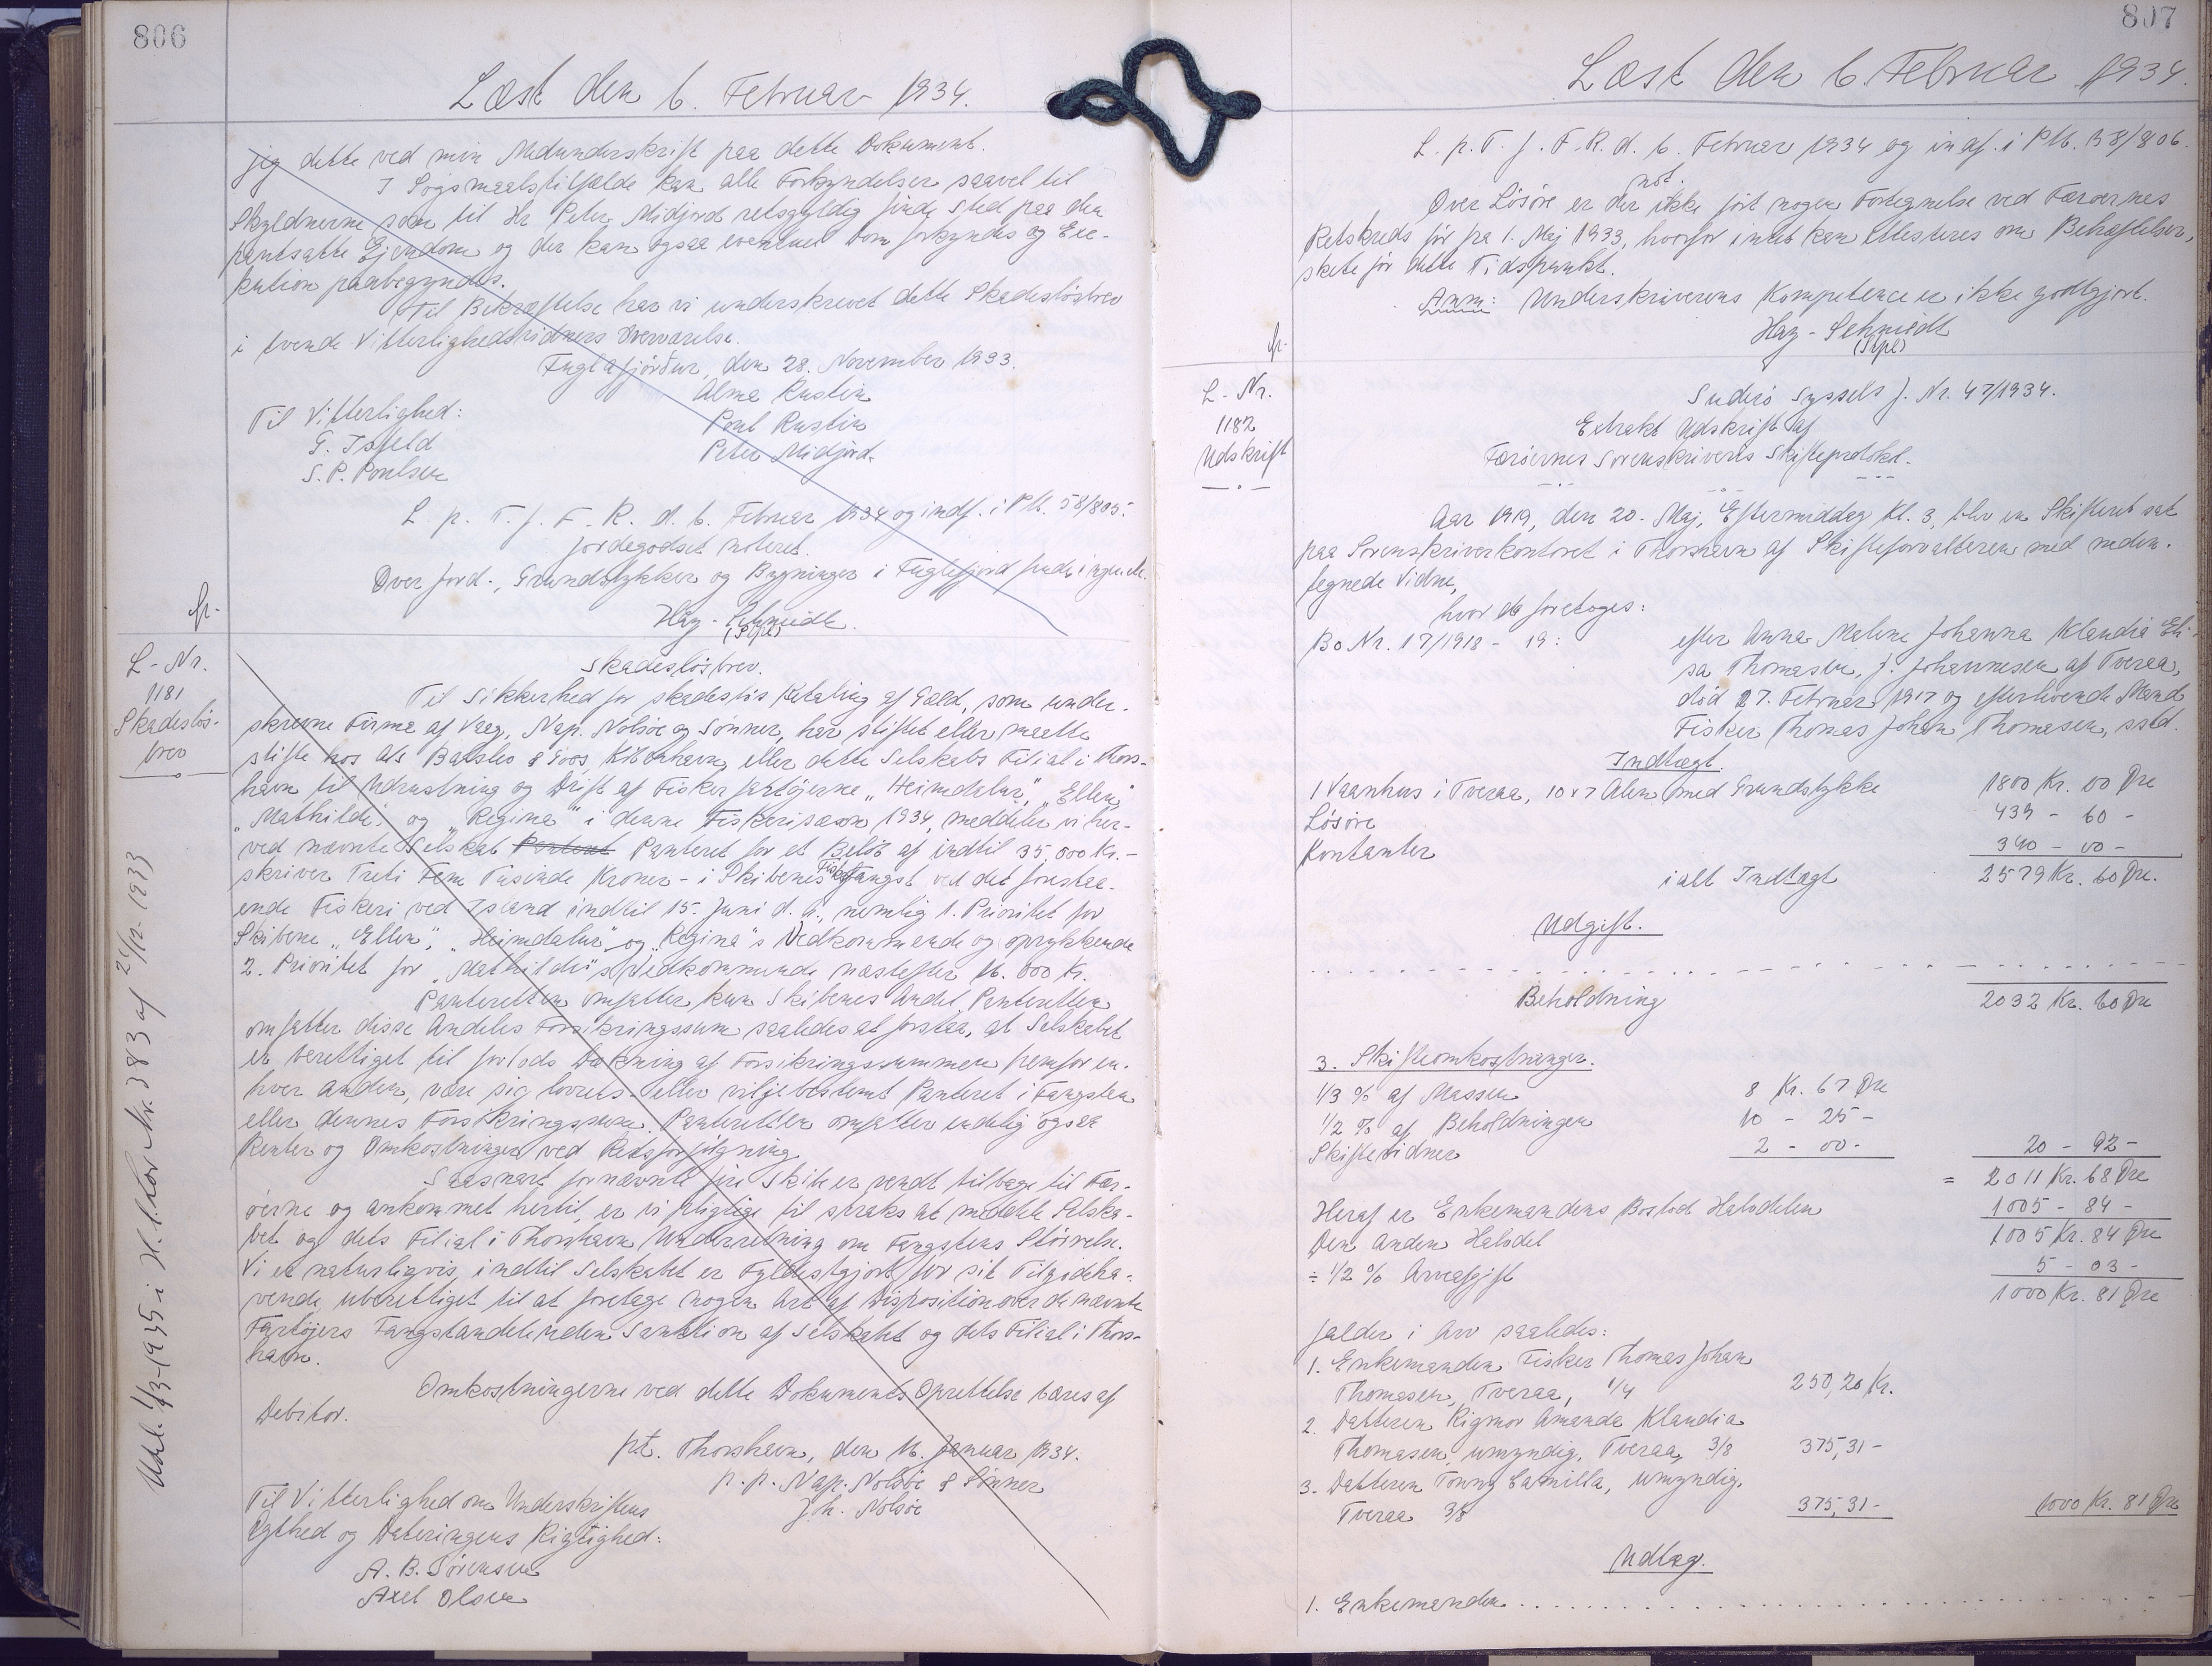 806
Læst den 6. Februar 1934.
jeg dette ved min Medunderskrift paa dette Dokument.
I Søgsmaalstilfælde kan alle Forkyndelser saavel til
Skyldnerne som til Hr Peter Midjord retsgyldig finde Sted paa den
pantsatte Ejendom og der kan ogsaa eventuel Dom forkyndes og Exe-
kution paabegyndes.
Til Bekræftelse har vi underskrevet dette Skadesløsbrev
i tvende Vitterlighedsvidners Overværelse.
Fuglafjørður, den 28. November 1933.
Alma Rustin
Til Vitterlighed:
Poul Rustin
G. Isfeld
Peter Midjord.
S. P. Poulsen
L. p. T. f. F. R. d. 6. Februar 1934 og indf. i Pb. 58/805.
Jordegodset noteret.
Over Jord-, Grundstykker og Bygninger i Fuglefjord findes ingen
Hay-Schmidt.
(Sgpl)
fr.
L-Nr.
1181
Skadesløs-
brev
Skadesløsbrev.
Til Sikkerhed for skadesløs Betaling af Gæld, som under-
skrevne Firma af Vaag, Nap. Nolsøe og Sønner, har stiftet eller maatte
stifte hos A/s Balslev & Goos, København, eller dette Selskabs Filial i Thors-
havn til Udrustning og Drift af Fiskerfartøjerne „Heimdalur", „Ellen",
„Mathilde" og „Regina" i denne Fiskerisæson 1934, meddeler vi her-
ved nævnte Selskab Panteret Panteret for et Beløb af indtil 35,000 Kr.-
skriver Treti Fem Tusinde Kroner - i Skibenes Fiskefangst ved det forestaa-
ende Fiskeri ved Island indtil 15. Juni d. A., nemlig 1. Prioritet for
Skibene „Ellen", „Heimdalur" og „Regina"s Vedkommende og oprykkende
2. Prioritet for „Mathilde"s Vedkommende næstefter 16.000 Kr.
Panteretten omfatter kun Skibenes Andel, Panteretten
omfatter disse Andeles Forsikringssum saaledes at forstaa, at Selskabet
er berettiget til forlods Dækning af Forsikringssummen fremfor en-
hver anden, være sig lovens- eller viljebestemt Panteret i Fangsten
eller dennes Forsikringssum. Panteretten omfatter endelig ogsaa
Renter og Omkostninger ved Retsforfølgning.
Saasnart fornævnte fire Skibe er vendt tilbage til Fær-
øerne og ankommet hertil, er vi pligtige til straks at meddele Selska-
bet og dets Filial i Thorshavn Underretning om Fangstens Størrelse.
Vi er naturligvis, indtil Selskabet er fyldestgjort for sit Tilgodeha-
vende, uberettiget til at foretage nogen Art af Disposition over de nævnte
Fartøjers Fangstandele uden Sanktion af Selskabet og dets Filial i Thors-
havn.
Omkostningerne ved dette Dokuments Oprettelse bæres af
Debitor.
pt. Thorshavn, den 16. Januar 1934.
p.p. Nap. Nolsøe & Sønner
Joh. Nolsøe
Til Vitterlighed om Underskriftens
Ægthed og Dateringens Rigtighed:
A. B. Sørensen
Axel Olsen
807
Læst den 6. Februar 1934.
L. p. T. f. F. R. d. 6. Februar 1934 og indf. i Pb. B 58/806.
not.
Over Løsøre er der ikke ført nogen Fortegnelse ved Færøernes
Retskreds før fra 1. Maj 1933, hvorfor intet kan attesteres om Behæftelser,
skete før dette Tidspunkt.
Anm: Underskriverens Kompetence er ikke godtgjort.
Hay-Schmidt
(Sgpl)
fr.
L-Nr.
1182
Udskrift
Suderø Syssels J. Nr. 47/1934.
Extrakt Udskrift af
Færøernes Sorenskriveris Skifteprotokol.
Aar 1919, den 20. Maj, Eftermiddag Kl. 3, blev en Skifteret sat
paa Sorenskriverkontoret i Thorshavn af Skifteforvalteren med neden-
tegnede Vidne,
hvor da foretoges:
Bo Nr. 17/1918 - 19: efter Anna Malene Johanna Klaudia Eli-
sa Thomasen, f. Johannesen af Tveraa,
død 27. Februar 1917 og efterlevende Mand
Fisker Thomas Johan Thomasen, sstd.
Indtægt.
1 Vaanhus i Tveraa, 10 x 7 Alen med Grundstykke 1800 Kr. 00 Øre
Løsøre 439 - 60 -
Kontanter 340 - 00 -
ialt Indtægt 2579 Kr. 60 Øre.
Udgift.
Beholdning 2032 Kr. 60 Øre
3. Skifteomkostninger.
1/3 % af Massen 8 Kr. 67 Øre
1/2 % af Beholdningen 10 - 25 -
Skiftevidner 2 - 00 - 20 - 92 -
= 2011 Kr. 68 Øre
Heraf er Enkemandens Boslod Halvdelen 1005 - 84 -
Den anden Halvdel 1005 Kr. 84 Øre
÷ 1/2 % Arveafgift 5 - 03 -
1000 Kr. 81 Øre
falder i Arv saaledes:
1. Enkemanden Fisker Thomas Johan
Thomasen, Tveraa, 1/4 250,20 Kr.
2. Datteren Rigmor Amanda Klaudia
Thomasen, umyndig, Tveraa 3/8 375,31 -
3. Datteren Tonny Camilla, umyndig,
Tveraa 3/8 375,31 - 1000 Kr. 81 Øre
Udlæg.
1. Enkemanden